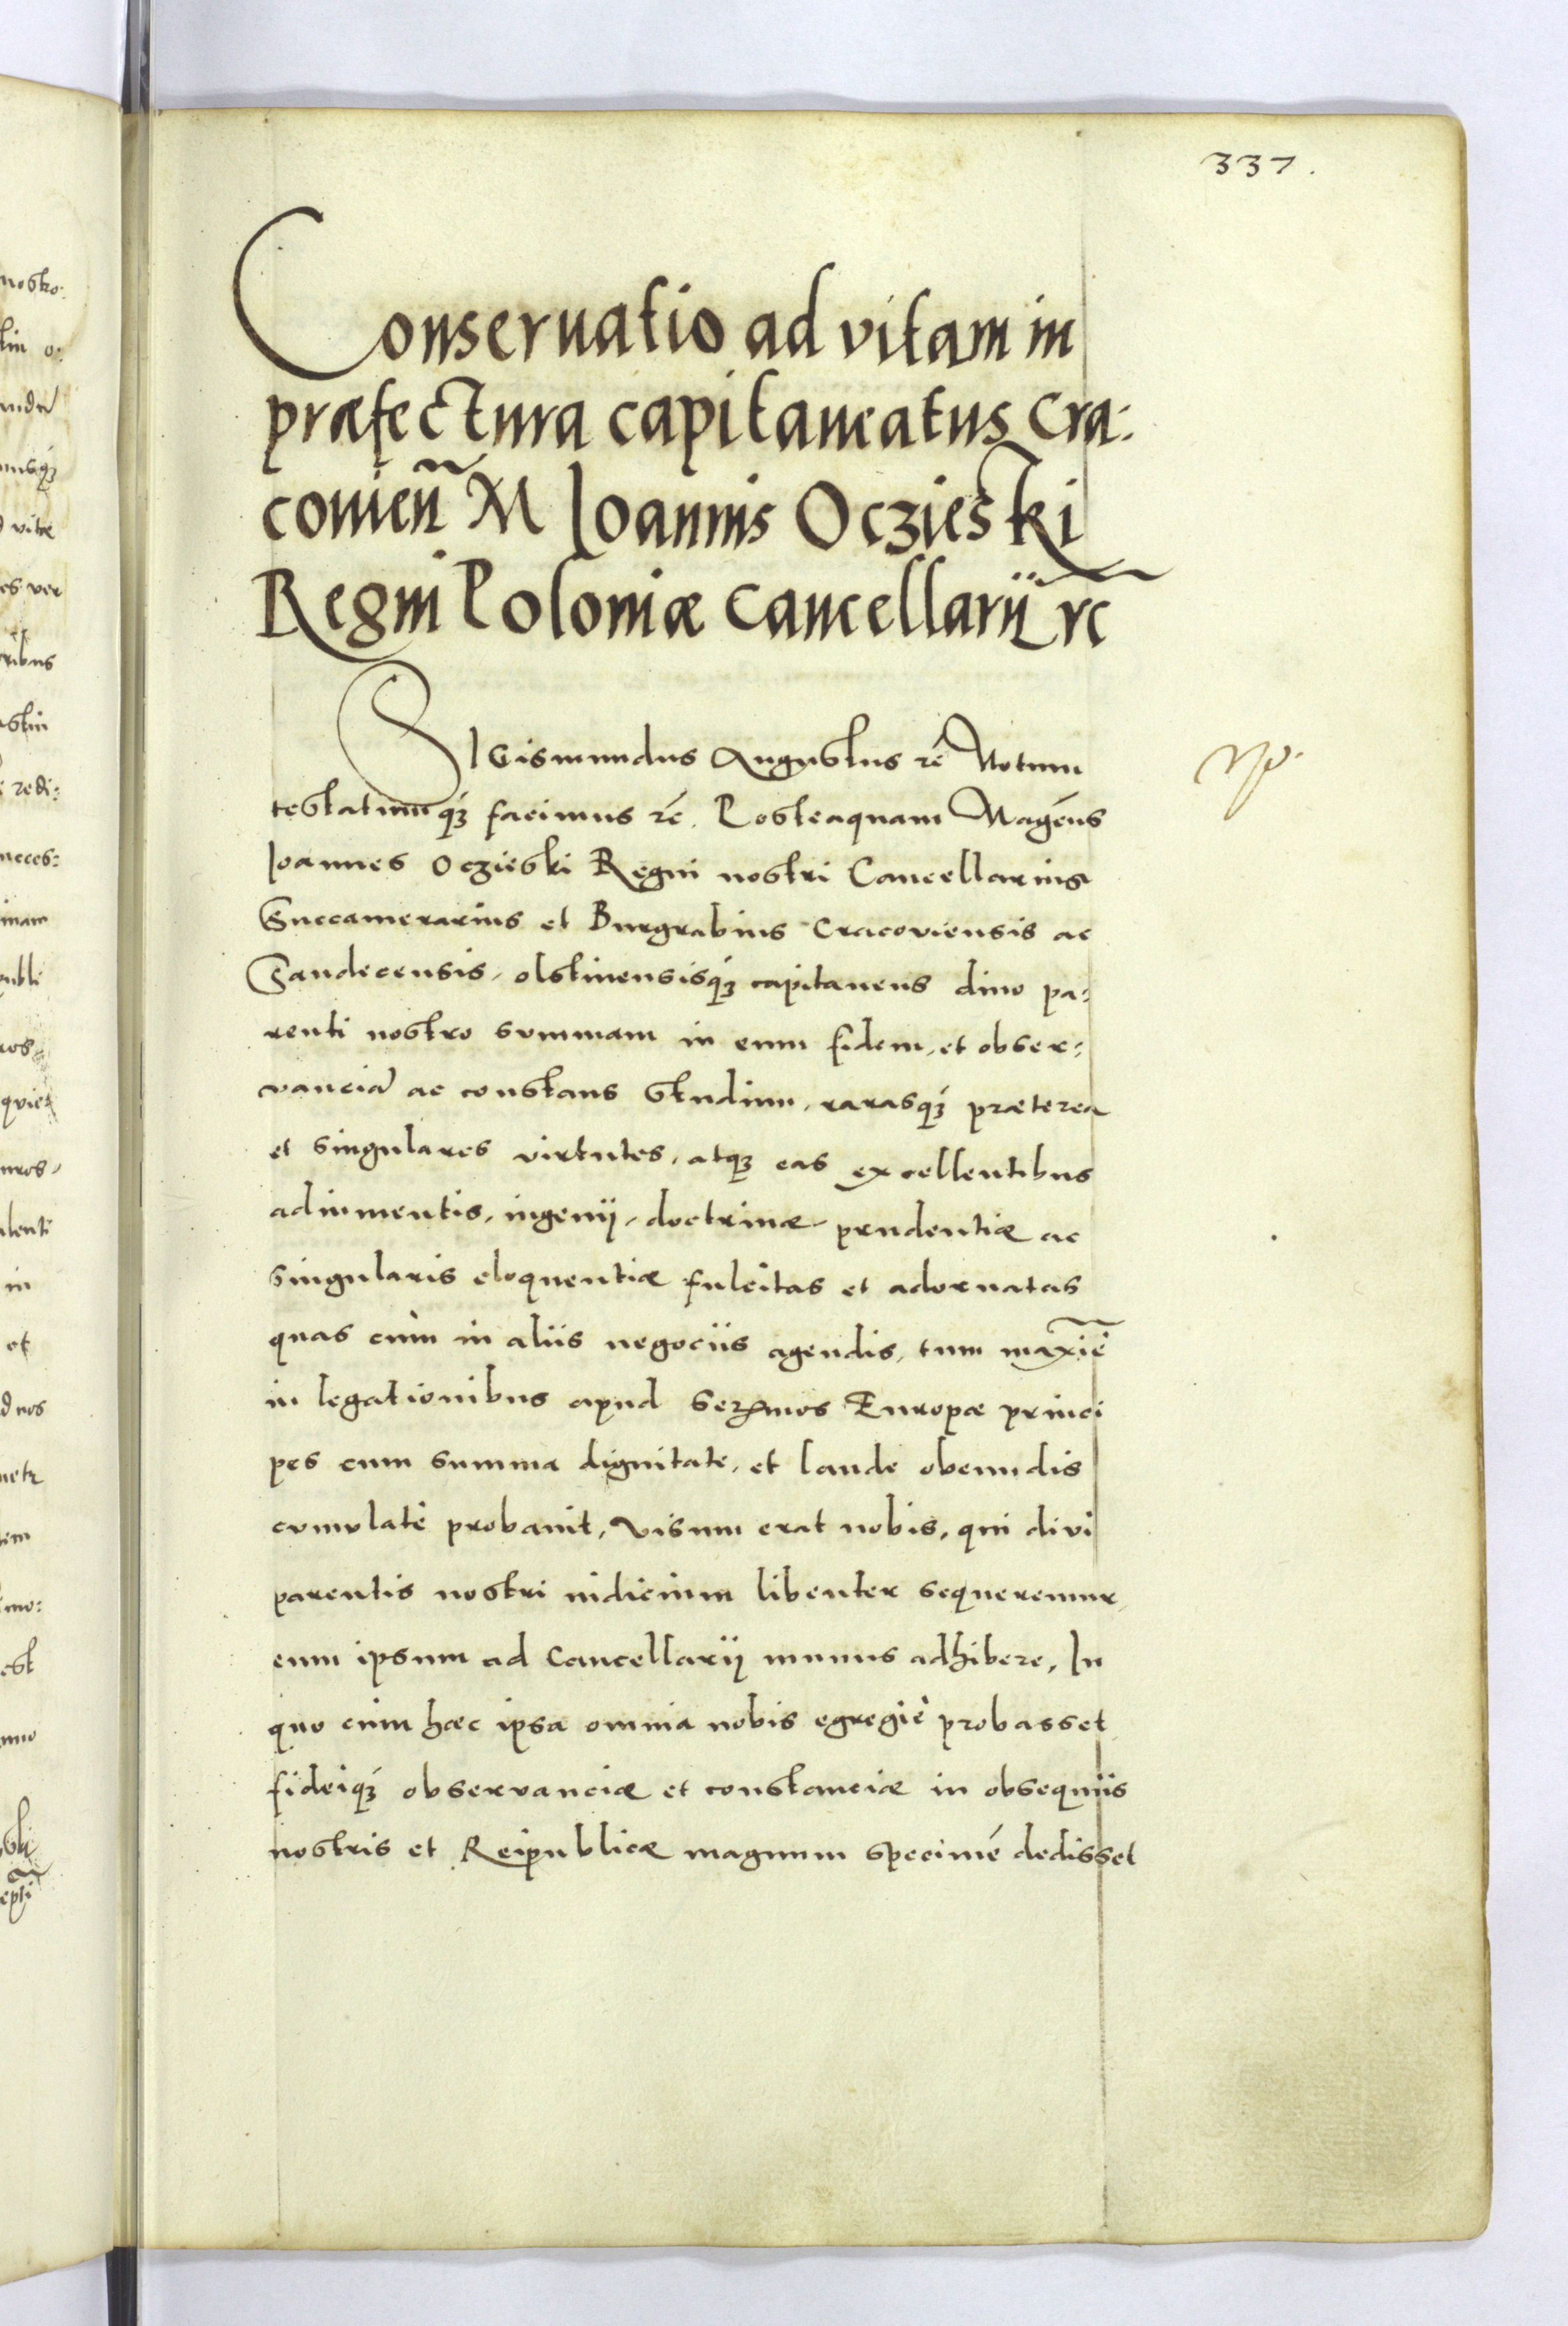 337.
Conseruatio ad vitam in
præfectura capitaneatus Cra:
couien̄ M Ioannis Oczieski
Regni Poloniæ Cancellarij rc
SIGismundus Augustus rē Notum
testatumq́ꝫ facimus rē. Posteaquam Magcus
Ioannes Oczieski Regni nostri Cancellarius
Succamerarius et Burgrabius Cracoviensis ac
Sandecensis, olstinensisq́ꝫ capitaneus diuo pa:
renti nostro summam in eum fidem, et obser:
vanciā ac constans studium, rarasq́ꝫ præterea
et singulares virtutes, atqꝫ eas excellentibus
adiumentis, ingenij, doctrinæ, prudentiæ ac
singularis eloquentiæ fulcitas et adornatas
quas cùm in aliis negociis agendis, tum maxiē
in legationibus apud serꝫmos Europæ princi
pes cum summa dignitate, et laude obeundis
cumulatè probauit, visum erat nobis, qui divi
parentis nostri iudicium libenter sequeremur,
eum ipsum ad Cancellarij munus adhibere, In
quo cùm hæc ipsa omnia nobis egregiè probasset
fideiq́ꝫ observanciæ et constanciæ in obsequiis
nostris et Reipublicæ magnum specimē dedisset